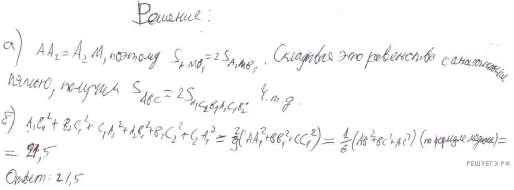 Решение:
а) AA₂=A₂M, поэтому S_AMB₁=2S_A₂MB₁. Складывая это равенство с аналогичными
пятью, получим S_ABC=2S_A₁C₂B₁A₂C₁B₂ ч.т.д.
б) A₁B₂²+B₂C₁²+C₁A₂²+A₂B₁²+B₁C₂²+C₂A₁²=2/9(AA₁²+BB₁²+CC₁²)=1/6(AB²+BC²+AC²)(по формуле медианы)=
=21,5
Ответ: 21,5
РЕШУЕГЭ.РФ